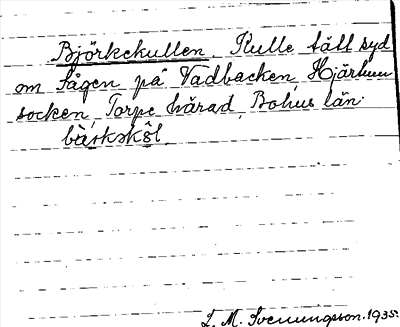 Björkekullen. Kulle tätt syd
om vägen på Vadbacken, Hjärtum
socken, Torpe härad, Bohus län.
L. M. Svenungsson. 1935.